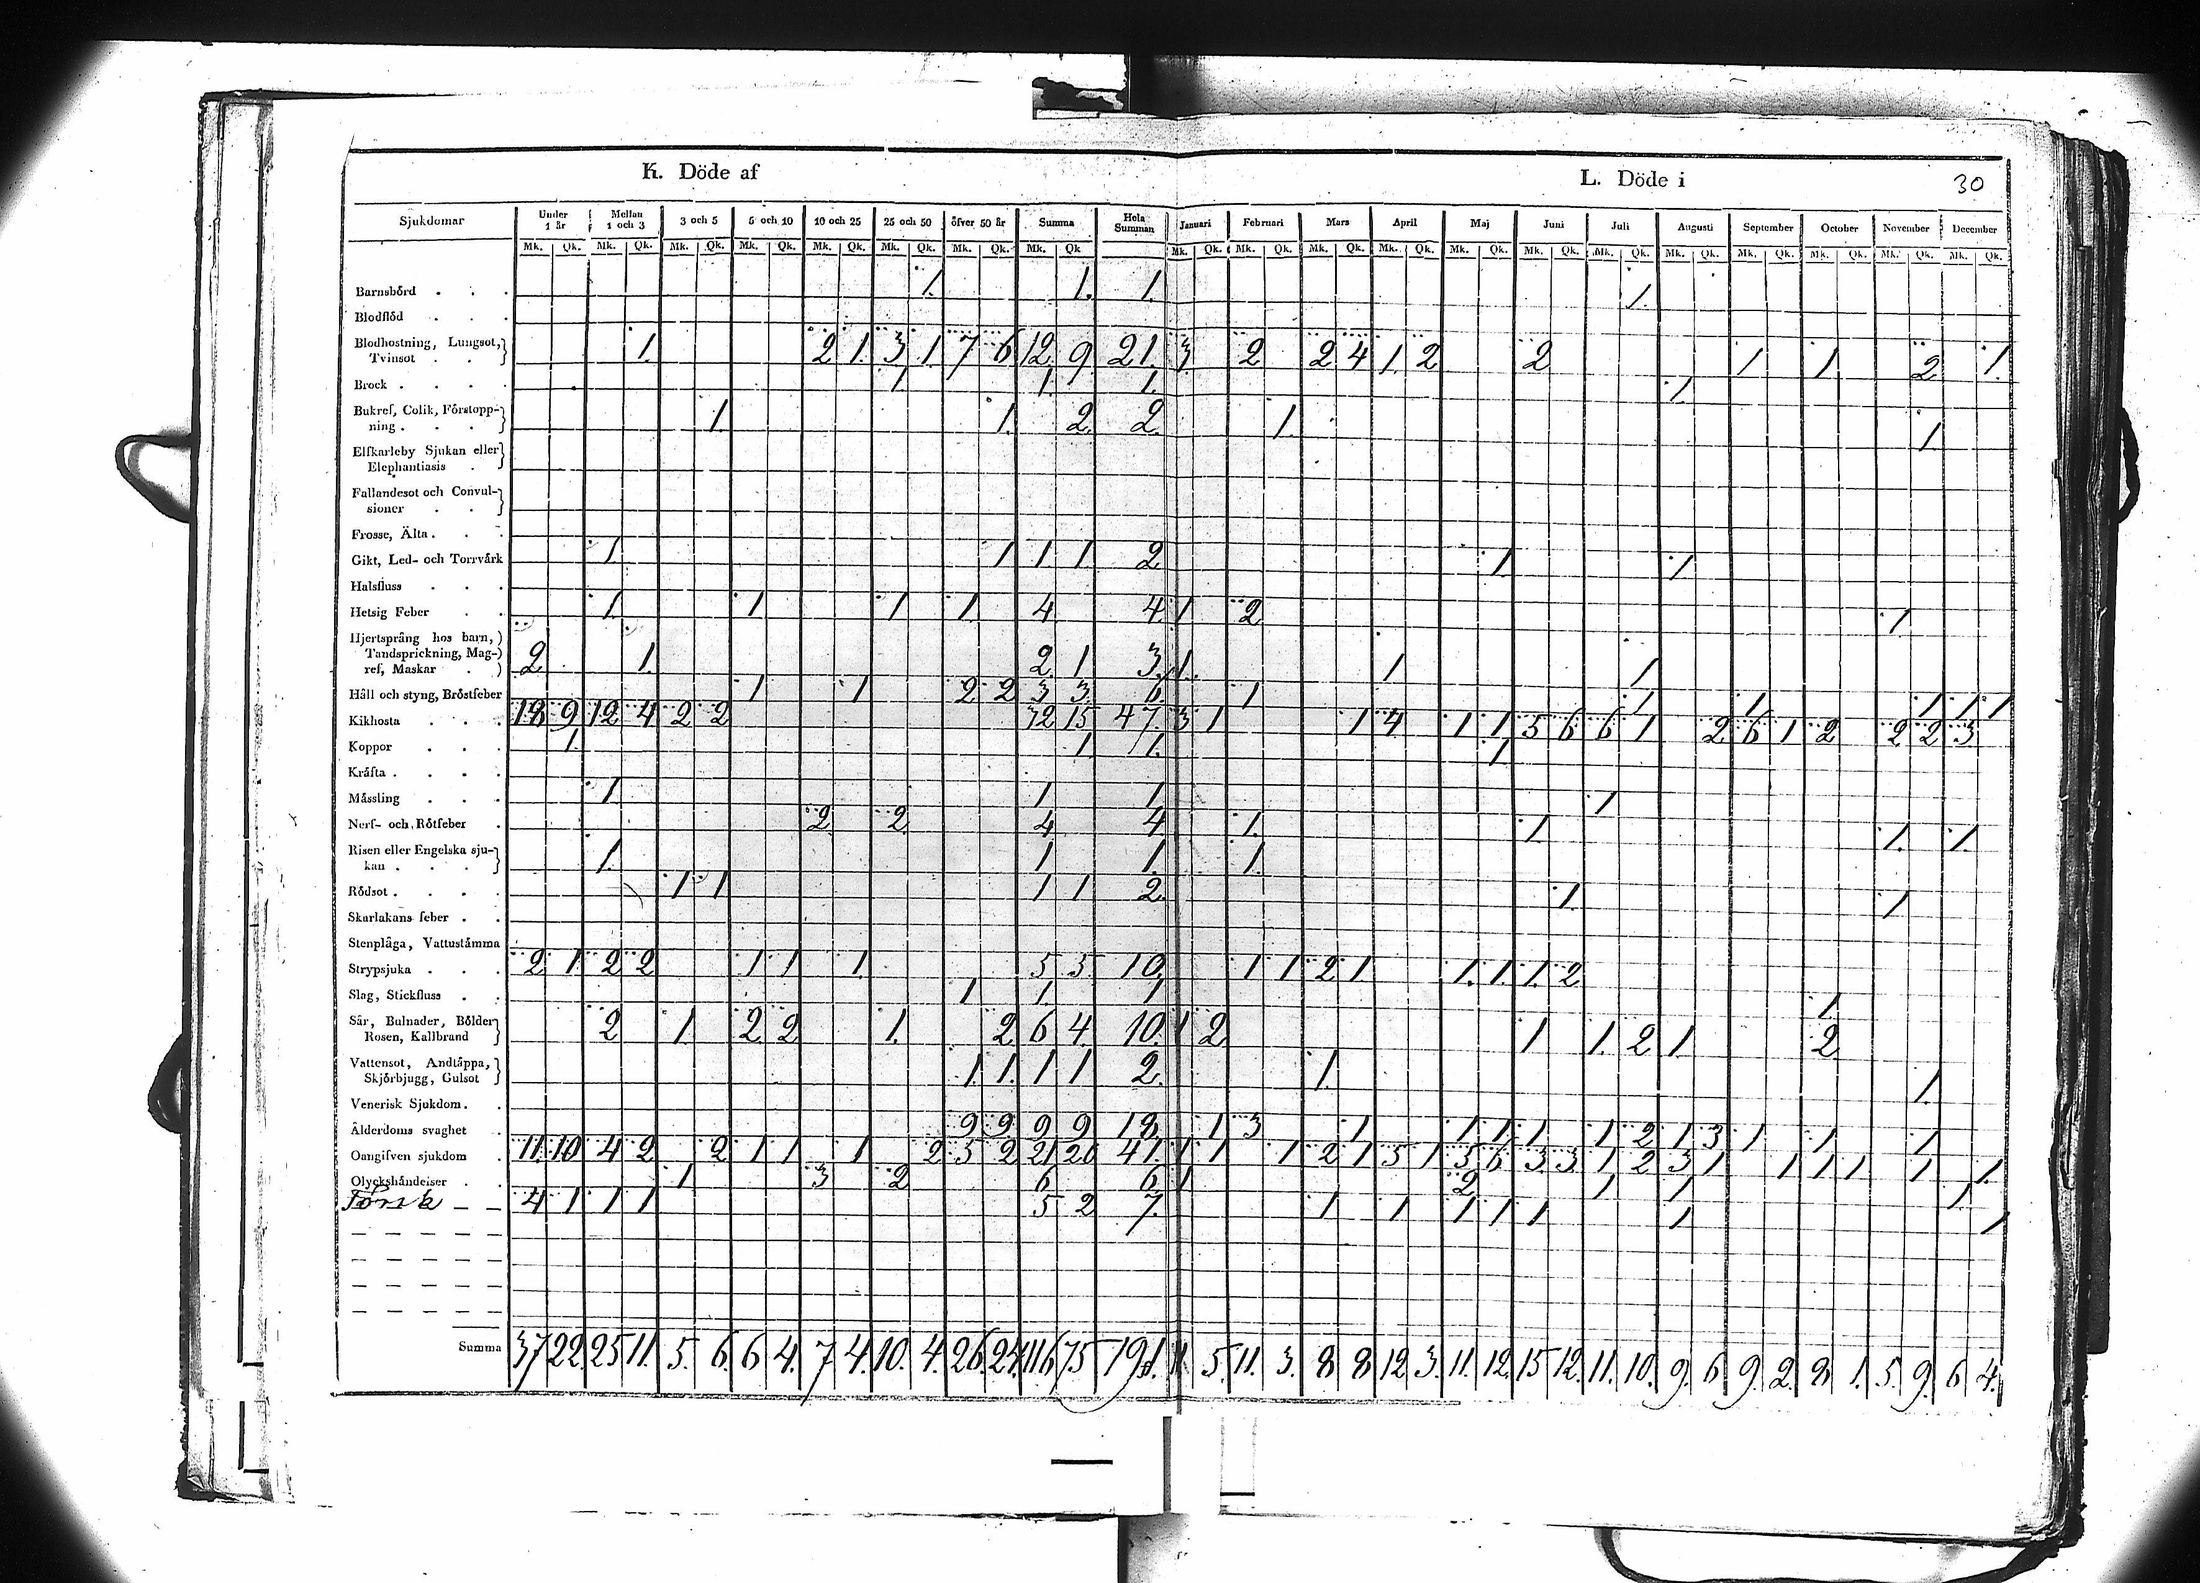 K. Döde af
L. Döde i
30
Sjukdomar Under 1 år Mellan 1 och 3 3 och 5 5 och 10 10 och 25 25 och 50 öfver 50 år Summa Hela Summan Januari Februari Mars April Maj Juni Juli Augusti September October November December
Mk. Qk. Mk. Qk. Mk. Qk. Mk. Qk. Mk. Qk. Mk. Qk. Mk. Qk. Mk. Qk Mk. Qk. Mk. Qk. Mk. Qk. Mk. Qk. Mk. Qk. Mk. Qk. Mk. Qk. Mk. Qk. Mk. Qk. Mk. Qk. Mk. Qk. Mk. Qk.
Barnsbörd 1. 1. 1. 1.
Blodflöd
Blodhostning, Lungsot,
Tvinsot 1. 2 1. 3 1 7 6 12 9 21. 3 2 2 4 1 2 2 1 1 2 1.
Brock 1 1. 1. 1.
Bukref, Colik, Förstopp-
ning 1. 1. 2 2 1. 1
Elfkarleby Sjukan eller
Elephantiasis
Fallandesot och Convul-
sioner
Frosse, Älta
Gikt, Led- och Torrvärk 1 1 1 1 2 1 1
Halsfluss
Hetsig Feber 1 1 1 1 4 4. 1 2 1
Hjertsprång hos barn,
Tandsprickning, Mag-
ref, Maskar 2 1. 2 1 3 1. 1 1
Håll och styng, Bröstfeber 1 1 2 2 3 3 6 1 1 1 1 1 1
Kikhosta 18 9 12 4 2 2 32 15 47. 3 1 1 4 1 1 5 6 6 1 2 6 1 2 2 2 3
Koppor 1. 1 1. 1
Kräfta
Mässling 1 1 1 1
Nerf- och Rötfeber 2 2 4 4 1. 1. 1. 1.
Risen eller Engelska sju-
kan 1. 1 1. 1.
Rödsot 1 1 1 1 2. 1. 1
Skarlakans feber
Stenplåga, Vattustämma
Strypsjuka 2 1 2 2 1 1 1. 5 5 10 1 1 2 1. 1. 1. 1. 2
Slag, Stickfluss 1 1. 1 1
Sår, Bulnader, Bölder
Rosen, Kallbrand 2 1. 2 2 1. 2 6 4. 10. 1 2 1 1. 2 1 2
Vattensot, Andtäppa,
Skjörbjugg, Gulsot 1. 1. 1 1 2. 1. 1
Venerisk Sjukdom
Ålderdoms svaghet 9 9 9 9 18 1 3 1 1 1 1 1 2 1 3 1 1 1
Oangifven sjukdom 11. 10 4 2 2 1 1 1 2 5 2 21 20 41. 1 1 1 2 1 5 1 5 6 3 3 1 2 3 1 1 1 1 1 1.
Olyckshändelser 1 3 2 6 6 1 2 1 1 1
Torsk 4 1 1 1 5 2 7. 1 1 1 1 1 1 1
Summa 37 22. 25 11. 5. 6. 6 4. 7 4. 10. 4. 26. 24. 116 75 191. 11. 5. 11. 3. 8 8 12 3. 11. 12 15 12. 11. 10. 9. 6 9. 2. 8 1. 5. 9. 6 4.